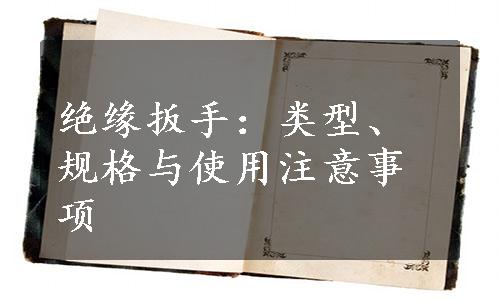 绝缘扳手：类型、
规格与使用注意事
项